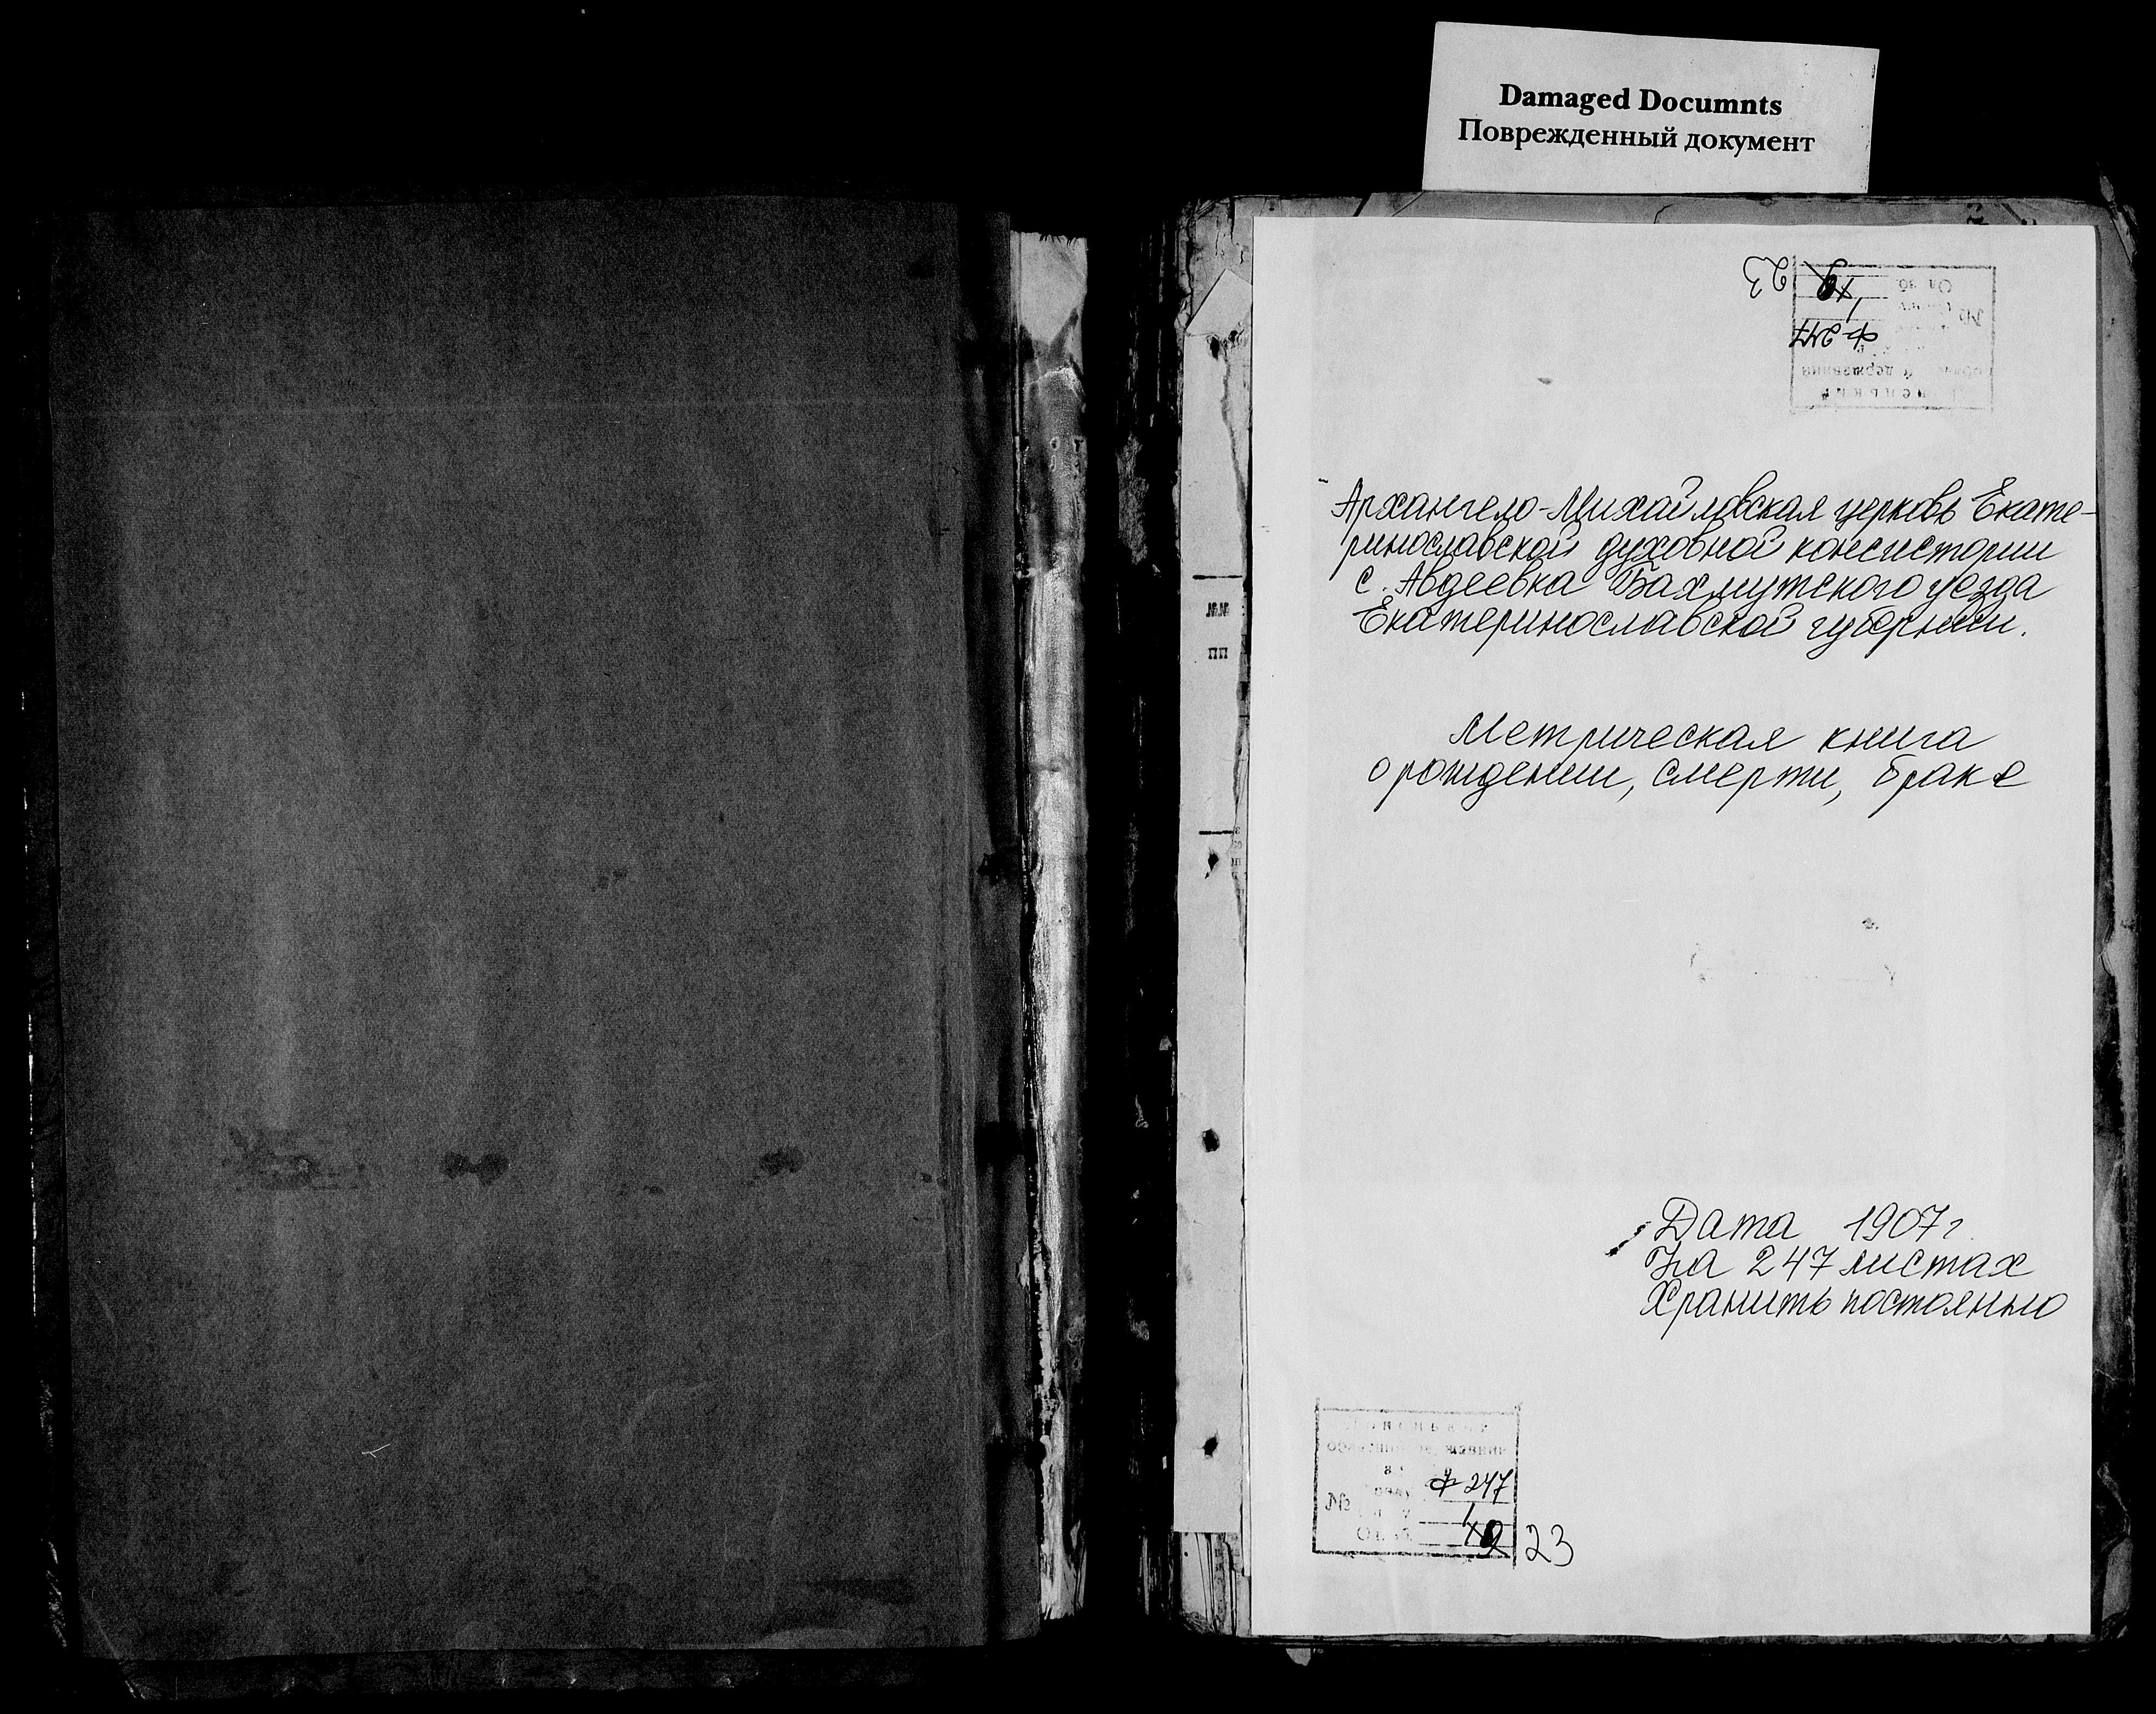 Damaged Documnts
Поврежденный документ
23
ф 247
Архангело-Михайловская церковь Екате-
ринославской духовной консистории
с. Авдеевка Бахмутского уезда
Екатеринославской губернии.
№№
пп
Метрическая книга
о рождении, смерти, браке
Дата 1907 г
На 247 листах
Хранить постоянно
ф 247
№
1
23